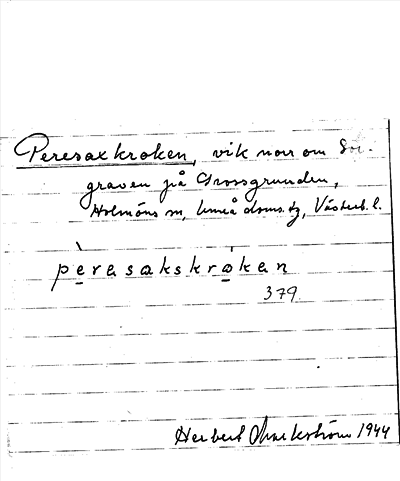 Peresaxkroken, vik norr om
graven på Grossgrunden,
Holmöns sn, Umeå doms. tg, Västerb. l.
peresakskroken
379
Herbert Markström 1944